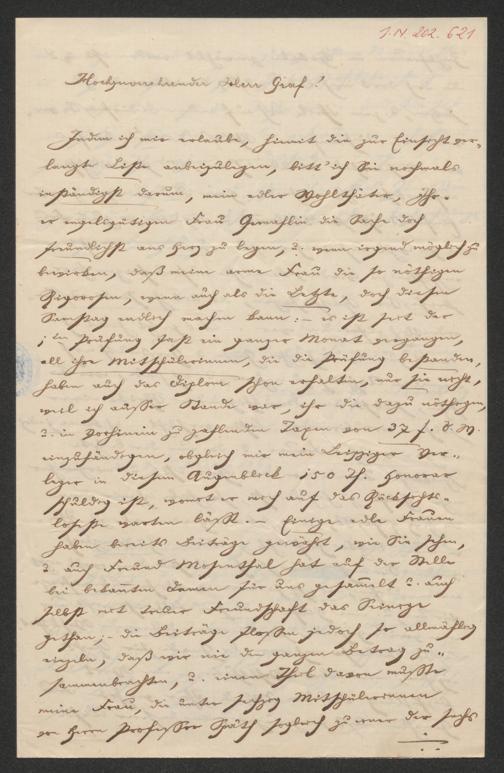 I.N. 202.621
Hochzuverehrender Herr Graf!
Indem ich mir erlaube, hiemit die zur Einsicht ver-
langte Liste anbeizulegen, bitt' ich Sie nochmals
inständigst darum, mein edler Wohlthäter, Ihr-
er engelsgütigen Frau Gemahlin die Sache doch
freundlichst ans Herz zu legen, u. wenn irgend möglich zu
bewirken, daß meine arme Frau die so nöthigen
Rigorosen, wenn auch als die Letzte, doch diesen
Samstag endlich machen kann: – es ist seit der
1ten Prüfung fast ein ganzer Monat vergangen,
all ihre Mitschülerinnen, die die Prüfung bestanden,
haben auch das Diplom schon erhalten, nur sie nicht,
weil ich außer Stande war, ihr die dazu nöthigen,
u. im Vorhinein zu zahlenden Taxen von 37 f. Ö. W.
einzuhändigen, obgleich mir mein Leipziger Ver-
leger in diesem Augenblick 150 Th. Honorar
schuldig ist, womit er mich auf das Rücksichts-
loseste warten läßt. – Einige edle Frauen
haben bereits Beiträge gewährt, wie Sie sehen,
u. auch Freund Mosenthal hat auf der Stelle
bei bekannten Damen für uns gesammelt u. auch
selbst mit teurer Freundschaft das Seinige
gethan; – die Beiträge flossen jedoch so allmählig
einzeln, daß wir nie den ganzen Betrag zu-
sammenbrachten, u. einen Theil davon mußte
meine Frau, die unter sechzig Mitschülerinnen
von Herrn Professor Späth sogleich zu einer der sechs